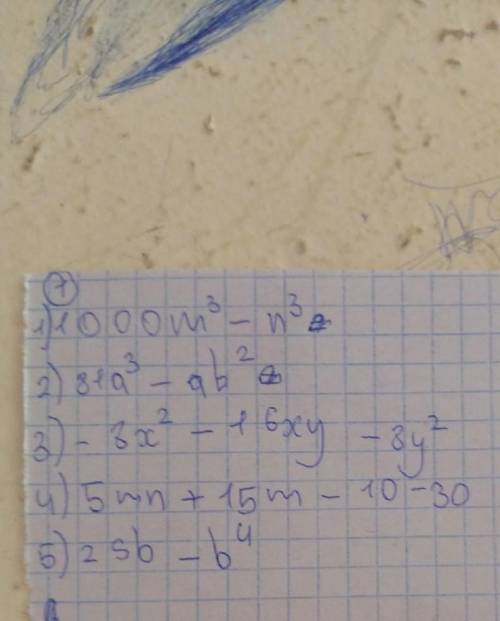 1
1) 1000m³ - n³
2) 81a³ - ab²
3) - 8x² - 16xy - 8y²
4) 5mn + 15m - 10 - 30
5) 25b - b⁴